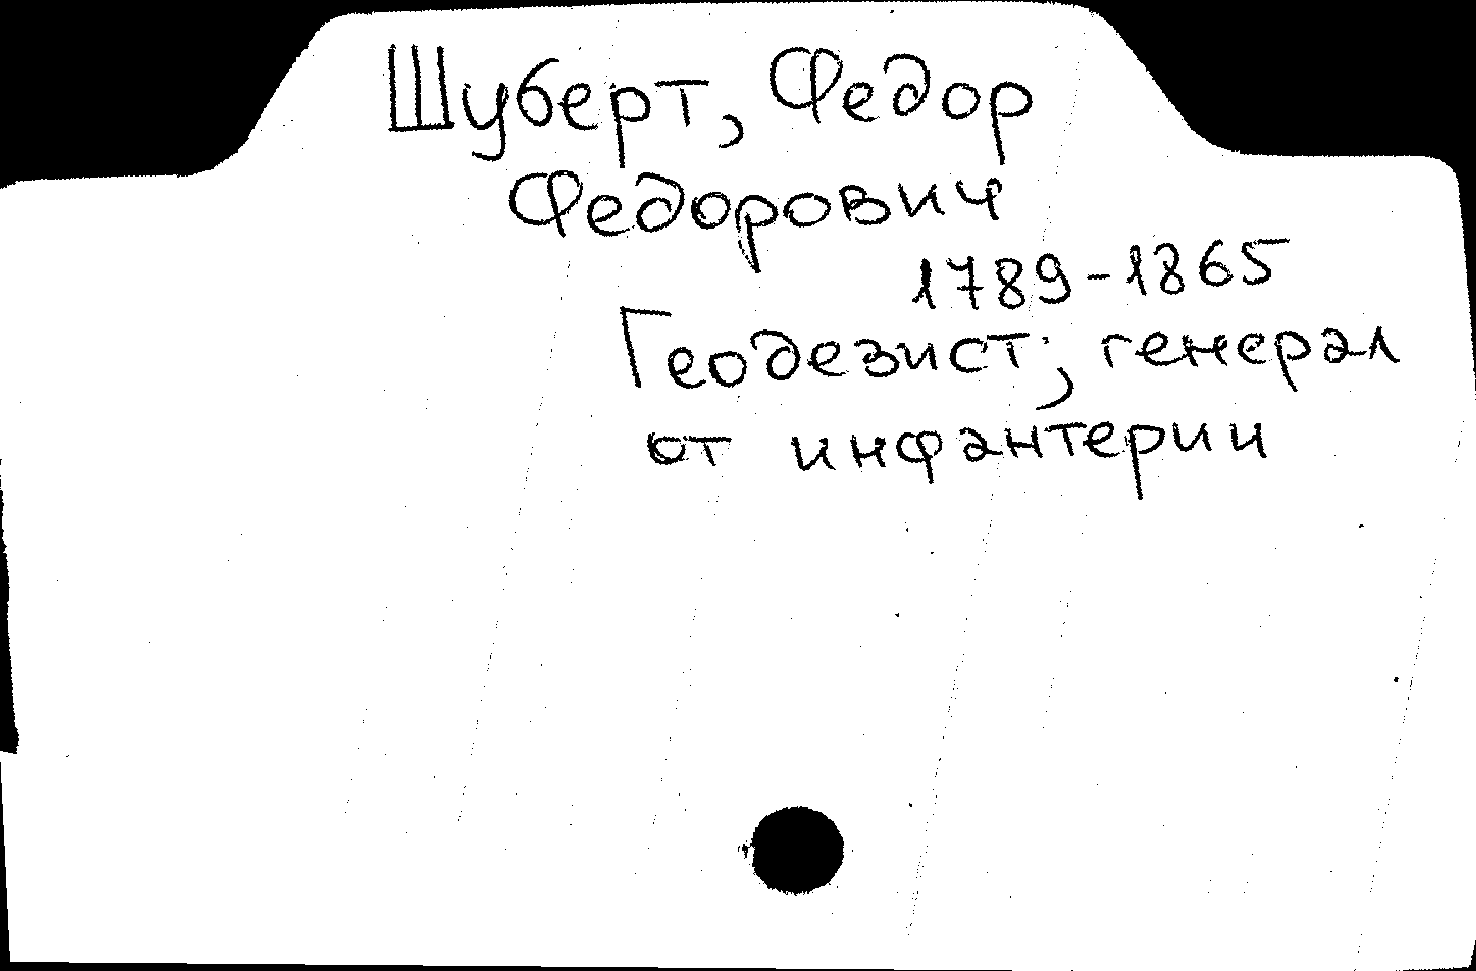 Шуберт, Федор
Федорович
1789-1865
Геодезист; генерал
от инфантерии